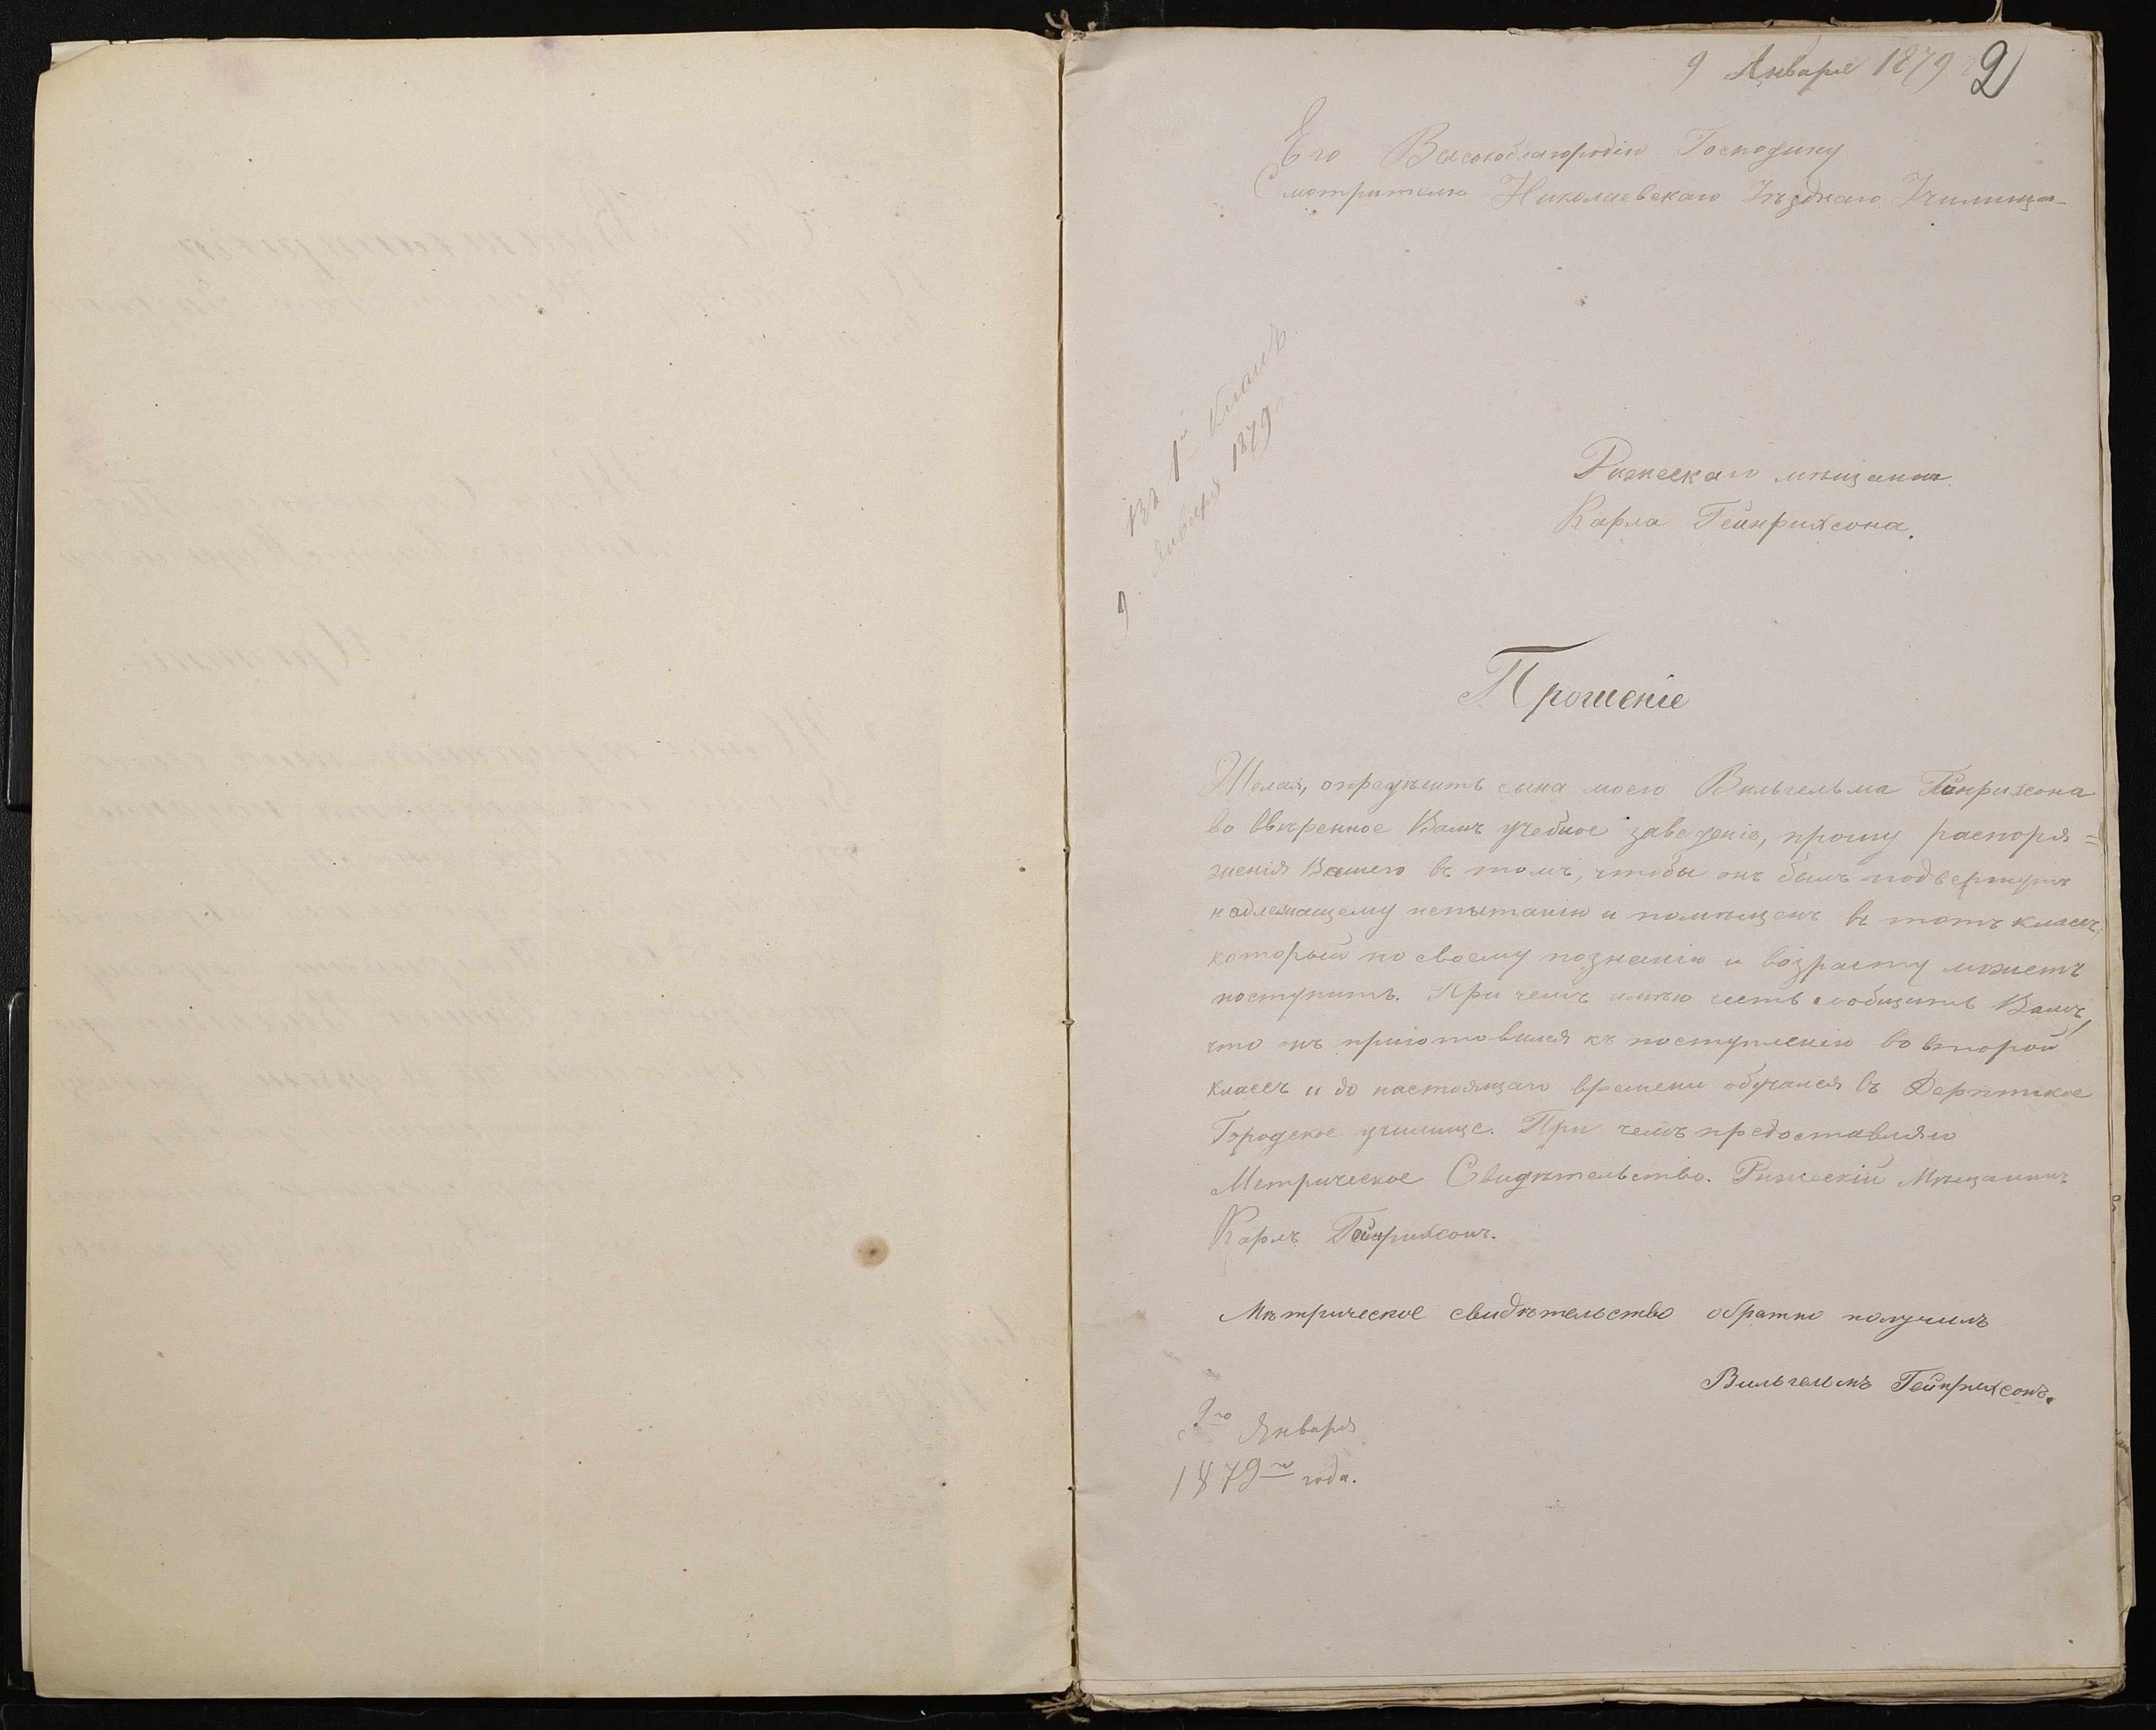 9 Января 1879
2
Его Высокоблагородію Господину
Смотрителю Николаевскаго Уѣзднаго Училища
Въ 1й классъ
9 Января 1879
Рижскаго мѣщанина
Карла Гейнрихсона.
Прошеніе
Желая, опредѣлить сына моего Вильгельма Гейнрихсона
во ввѣренное Вамъ учебное заведеніе, прошу распоря=
женія Вашего въ томъ, чтобы онъ былъ подвергнутъ
надлежащему испытанію и помѣщенъ въ тотъ классъ,
который по своему познанію и возрасту можетъ
поступить. При чемъ имѣю честь сообщить Вамъ,
что онъ приготовился къ поступленію во второй
классъ и до настоящаго времени обучался въ Дерптское
Городское училище. При чемъ предоставляю
Метрическое Свидѣтельство. Рижскій Мѣщанинъ
Карлъ Гейнрихсонъ.
Мѣтрическое свидѣтельство обратно получилъ
Вильгельмъ Гейнрихсонъ.
9го Января
1879го года.